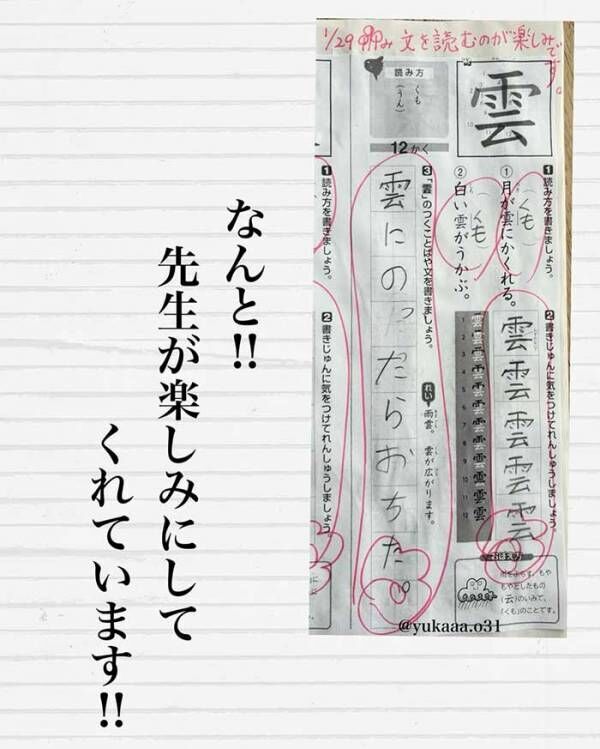 なんと!!
先生が楽しみにして
くれています!!
文を読むのが楽しみです。
雲
読み方
くも
(うん)
12かく
1 読み方を書きましょう。
① 月が雲にかくれる。
(くも)
② 白い雲がうかぶ。
(くも)
2 書きじゅんに気をつけてれんしゅうしましょう。
雲
雲
雲
雲
雲
3「雲」のつくことばや文を書きましょう。
れい 雨雲。雲が広がります。
雲にのったらおちた。
1 読み方を書きましょう。
2 書きじゅんに気をつけてれんしゅうしましょう
もやもやとしたもの
(云)のいみで、
「くも」のことです。
@yukaaa.o31